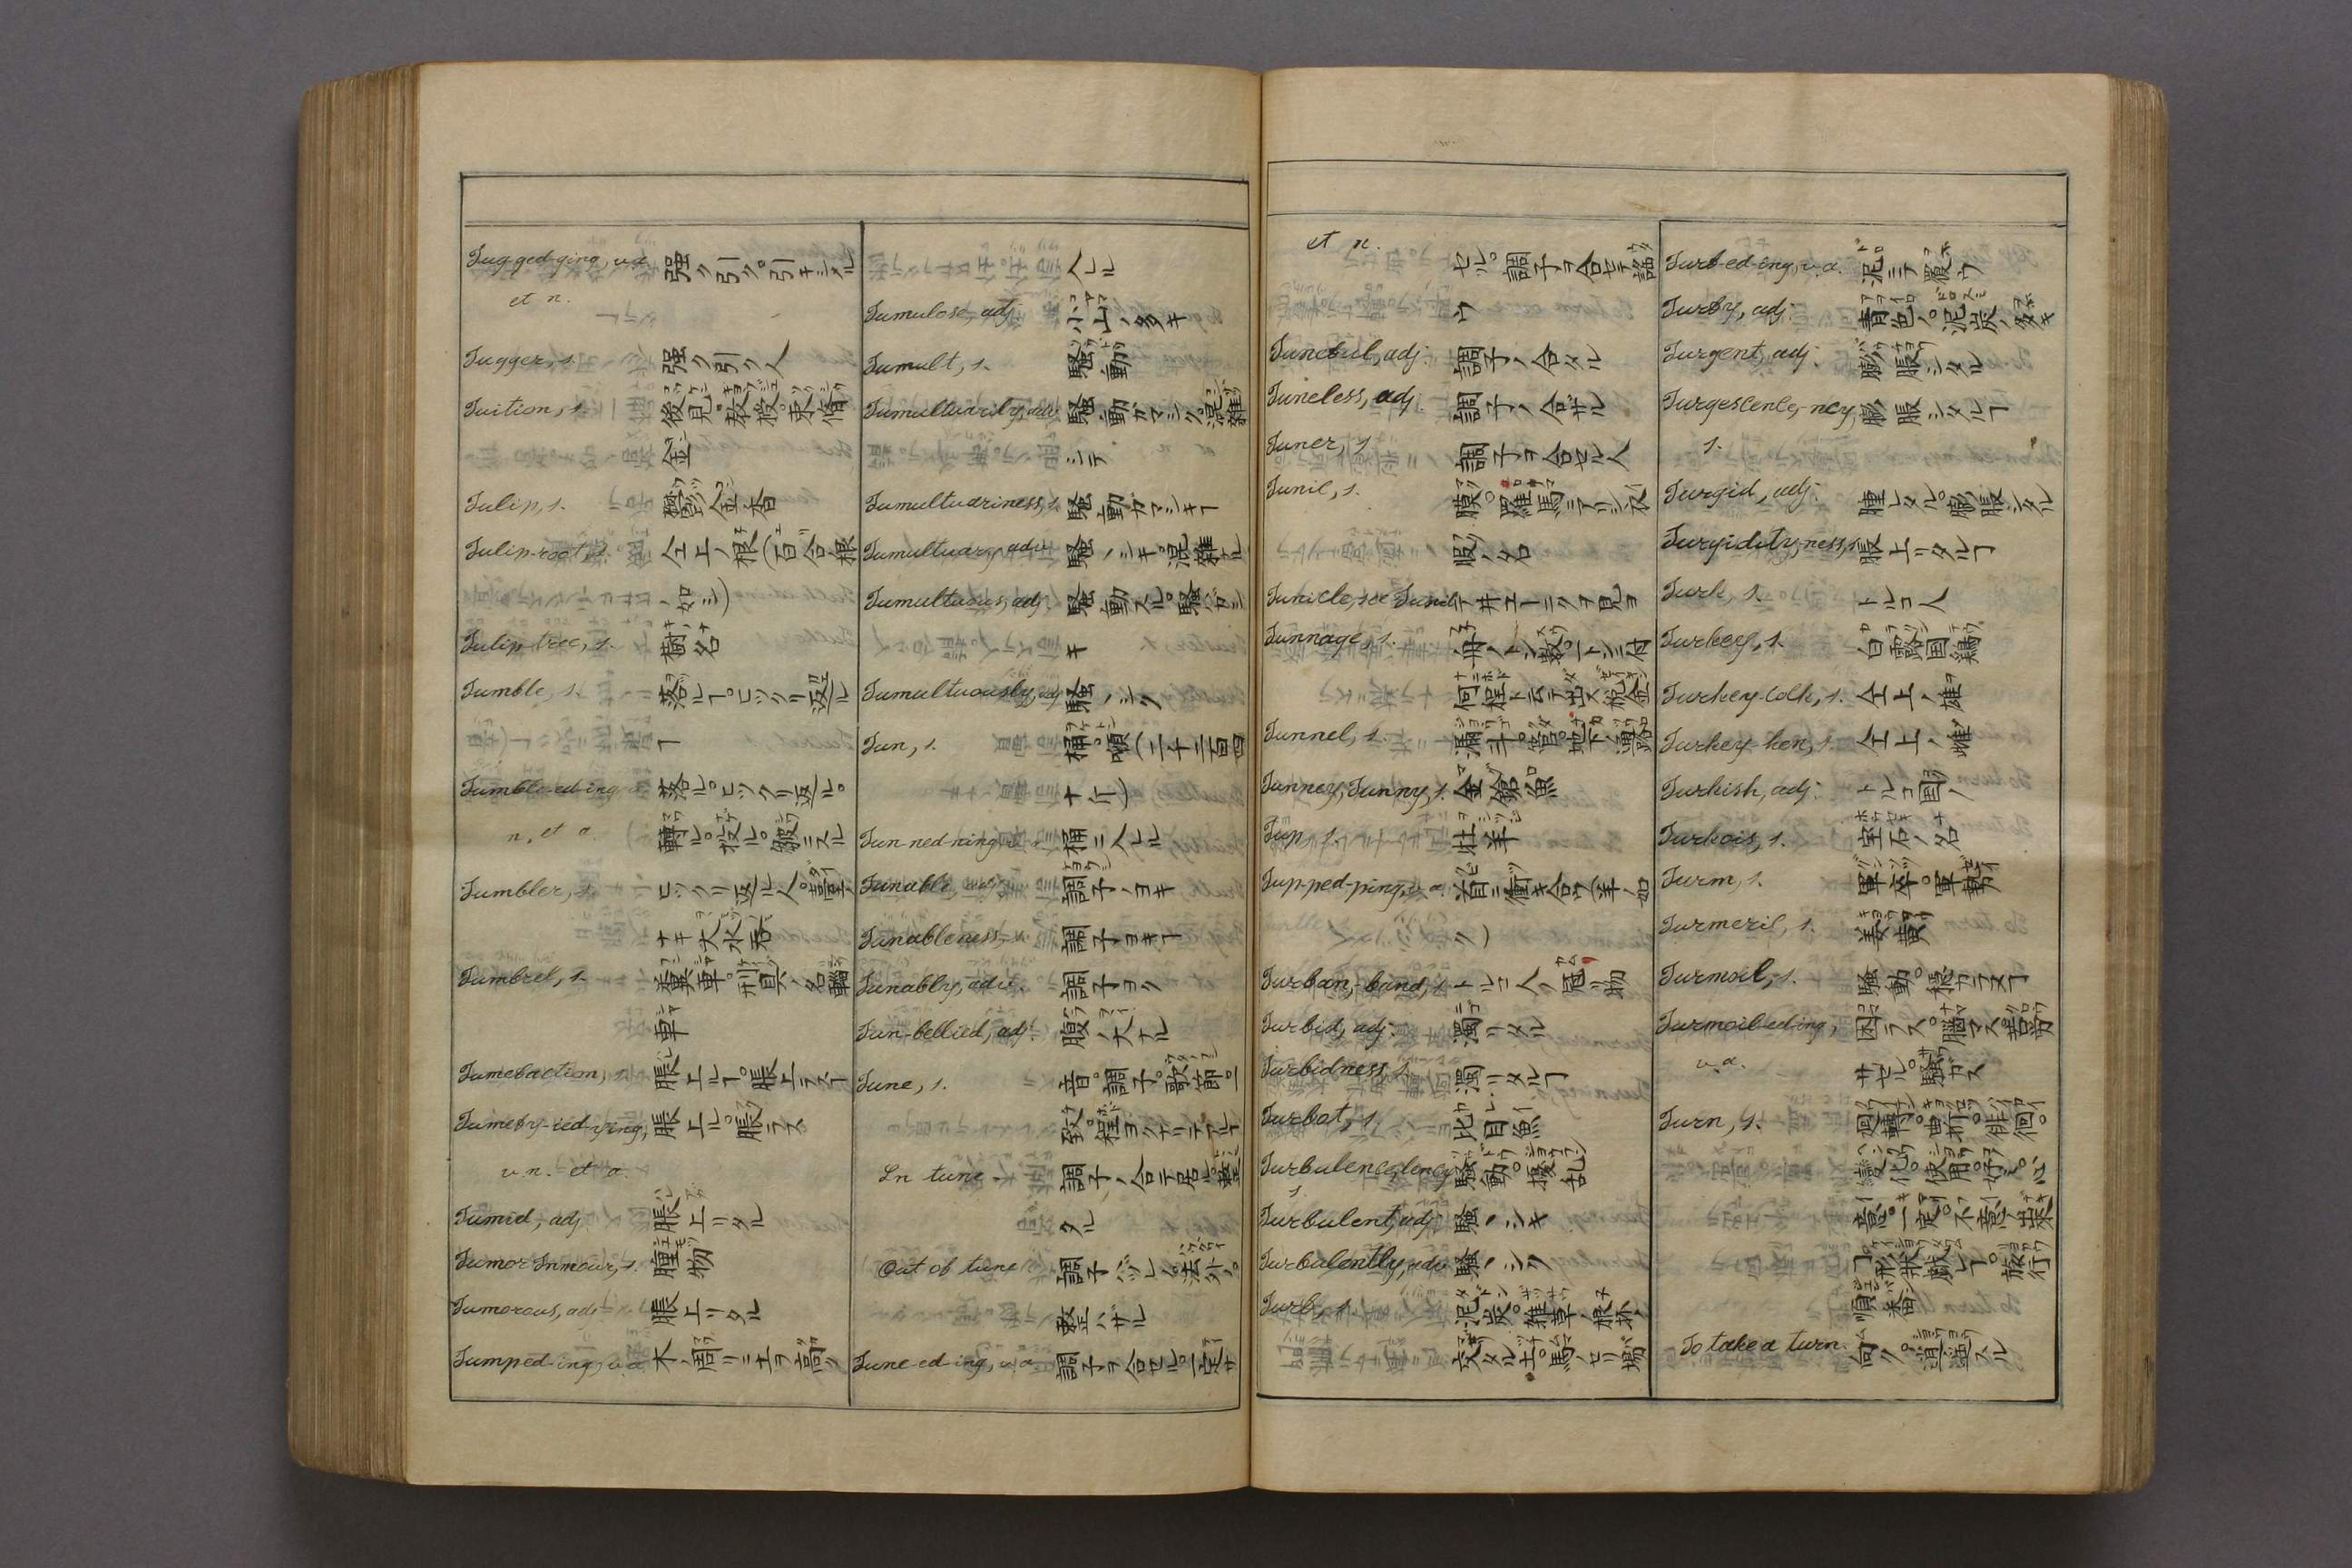 Tug-ged-ging, v.a. 強ク引ク。引キシメル
et n.
Tugger, s. 強ク引ク人
Tuition, s. 後見。教授。束脩
金
Tulip, s. 鬱金香
Tulip-root, s. 仝上ノ根(百合根
ノ如シ)
Tulip-tree, s. 樹ノ名
Tumble, s. 落ルヿ。ヒックリ返ル
ヿ
Tumble-ed-ing, v. 落ル。ヒックリ返ル。
n. et a. 轉ル。投ル。皺ニスル
Tumbler, s. ヒックリ返ル人。臺ノ
ナキ大水呑
Tumbrel, s. 糞車。刑具ノ名。輜
車
Tumefaction, s. 脹上ルヿ。脹上ラスヿ
Tumefy-ied-ying, 脹上ル。脹ラス
v.n. et a.
Tumid, adj. 脹上リタル
Tumor-Tumour, s. 腫物
Tumorous, adj. 脹上リタル
Tumped-ing, v.a. 木ノ周リニ土ヲ高ク
入レル
Tumulose, adj. 小山ノ多キ
Tumult, s. 騒動
Tumultuarily, adv. 騒動ガマシク。混雑
シテ
Tumultuariness, s. 騒動ガマシキヿ
Tumultuary, adv. 騒ヽシキ。混雑セル
Tumultuous, adj. 騒動スル。騒ガシ
キ
Tumultuously, adj. 騒ヽシク
Tun, s. 桶。噸(二千二百四
十斤)
Tun-ned-ning, v.a. 桶ニ入レル
Tunable, adj. 調子ノヨキ
Tunableness, s. 調子ヨキヿ
Tunably, adv. 調子ヨク
Tun-bellied, adj. 腹ノ大ナル
Tune, s. 音。調子。歌ノ節。一
致。程ヨクナリテアルヿ
In tune. 調子ノ合テ居ル。整
タル
Out of tune 調子ハヅレノ。法外ノ。
整ハザル
Tune-ed-ing, v.a. 調子ヲ合セル。一定サ
et n. セル。調子ヲ合セテ謡
ウ
Tuneful, adj. 調子ノ合タル
Tuneless, adj. 調子ノ合ザル
Tuner, s. 調子ヲ合セル人
Tunic, s. 膜。羅馬ニテアリシ衣
服ノ名
Tunicle, see Tunic
Tunnage, s.
何程ト云テ出ス税金
Tunnel, s. 漏斗。管。地下ノ通路
Tunney, Tunny, s. 金鎗魚
Tup, s. 牡羊
Tup-ped-ping, v.a. 首ニ衝キ合ウ(羊ノ如
ク)
Turban, -band, s. トルコ人ノ冠リ物
Turbid, adj. 濁リタル
Turbidness, s. 濁リタルヿ
Turbot, s. 比目魚
Turbulence, lency, 騒動。擾乱
s.
Turbulent, adj. 騒ヽシキ
Turbulently, adv. 騒ヽシク
Turf, s. 泥炭。雑草ノ根抔ノ
交タル土。馬ノセリ場
Turf-ed-ing, v.a. 泥ニテ覆ウ
Turfy, adj. 青色ノ。泥炭ノ多キ
Turgent, adj. 膨脹シタル
Turgescence, -ncy, 膨脹シタルヿ
s.
Turgid, adj. 腫レタル。膨脹シタル
Turgidity, ness, s. 脹上リタルヿ
Turk, s. トルコ人
Turkey, s. 白露国鶏
Turkey-cock, s. 仝上ノ雄
Turkey-hen, s. 仝上ノ雌
Turkish, adj. トルコ国ノ
Turkois, s. 宝石ノ名
Turm, s. 軍卒。軍勢
Turmeric, s. 姜黄
Turmoil, s. 騒動。穏カラヌヿ
Turmoil-ed-ing, 困ラス。悩マス。苦労
v.a. サセル。騒ガス
Turn, s. 廻轉。曲折。徘徊。
変化。使用。好ミ。心
意。一定。不意ノ出来
ヿ。形状。戯レヿ。旅行。
順番
To take a turn. 向ク。逍遥スル